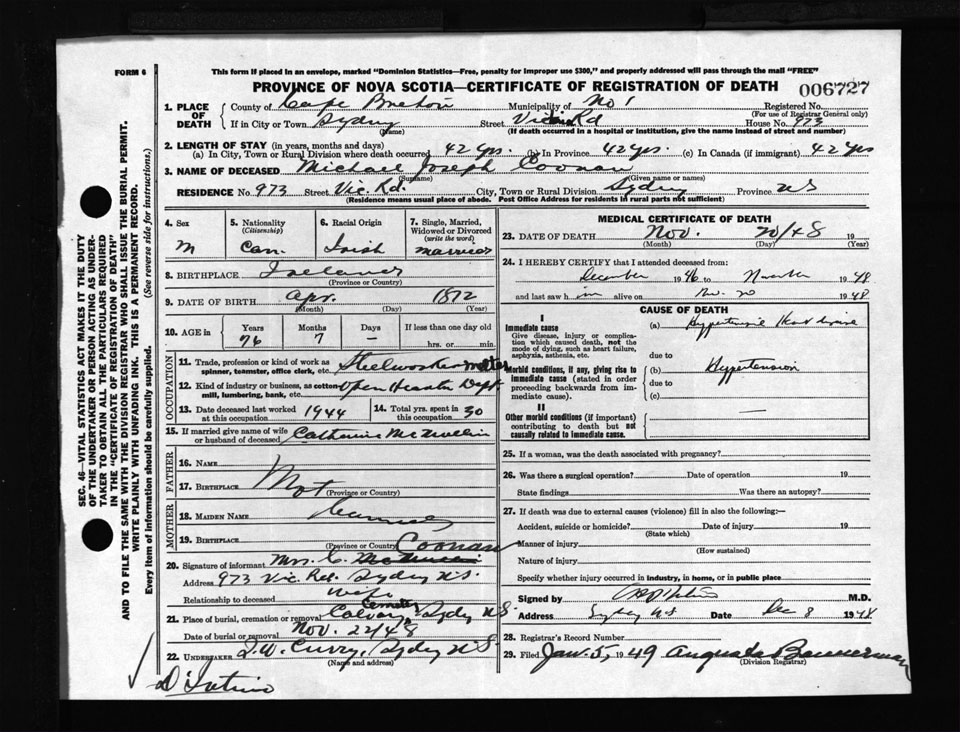 FORM 6
This form if placed in an envelope, marked "Dominion Statistics—Free, penalty for improper use $300," and properly addressed will pass through the mail "FREE"
PROVINCE OF NOVA SCOTIA—CERTIFICATE OF REGISTRATION OF DEATH 006727
1. PLACE OF DEATH { County of Cape Breton Municipality of No 1 Registered No.
(For use of Registrar General only)
If in City or Town Sydney Street Rd House No. 973
(Name) (If death occurred in a hospital or institution, give the name instead of street and number)
2. LENGTH OF STAY (in years, months and days)
(a) In City, Town or Rural Division where death occurred 42 yrs. (b) In Province 42 yrs. (c) In Canada (if immigrant) 42 yrs
3. NAME OF DECEASED Michael Joseph Coonan
(Surname) (Given name or names)
RESIDENCE No. 973 Street Vic. Rd. City, Town or Rural Division Sydney Province NS
(Residence means usual place of abode. Post Office Address for residents in rural parts not sufficient)
4. Sex M
5. Nationality (Citizenship) Can.
6. Racial Origin Irish
7. Single, Married, Widowed or Divorced (write the word) married
8. BIRTHPLACE Ireland
(Province or Country)
9. DATE OF BIRTH Apr. 1872
(Month) (Day) (Year)
10. AGE in Years 76 Months 7 Days – If less than one day old hrs. or min.
OCCUPATION
11. Trade, profession or kind of work as spinner, teamster, office clerk, etc. Steelworker melter
12. Kind of industry or business, as cotton mill, lumbering, bank, etc. Open Hearth Dept.
13. Date deceased last worked at this occupation 1944
14. Total yrs. spent in this occupation 30
15. If married give name of wife or husband of deceased Catherine McMullin
FATHER
16. Name
17. BIRTHPLACE Not
(Province or Country)
MOTHER
18. MAIDEN NAME
19. BIRTHPLACE
(Province or Country)
20. Signature of informant Mrs. C. Coonan
Address 973 Vic. Rd. Sydney N.S.
Relationship to deceased wife
21. Place of burial, cremation or removal Calvary Cemetery Sydney N.S.
Date of burial or removal Nov. 22/48
22. UNDERTAKER W. Curry, Sydney N.S.
(Name and address)
MEDICAL CERTIFICATE OF DEATH
23. DATE OF DEATH Nov. 20/48 19
(Month) (Day) (Year)
24. I HEREBY CERTIFY that I attended deceased from:
December 1946 to November 1948
and last saw him alive on Nov. 20 1948
CAUSE OF DEATH
I
Immediate cause
Give disease, injury or complication which caused death, not the mode of dying, such as heart failure, asphyxia, asthenia, etc.
(a) Hypertensive Heart disease
due to
Morbid conditions, if any, giving rise to immediate cause (stated in order proceeding backwards from immediate cause).
(b) Hypertension
due to
(c)
II
Other morbid conditions (if important) contributing to death but not causally related to immediate cause.
—
25. If a woman, was the death associated with pregnancy?
26. Was there a surgical operation? Date of operation 19
State findings Was there an autopsy?
27. If death was due to external causes (violence) fill in also the following:—
Accident, suicide or homicide? Date of injury 19
(State which)
Manner of injury
(How sustained)
Nature of injury
Specify whether injury occurred in industry, in home, or in public place
Signed by M.D.
Address Sydney NS Date Dec 8 1948
28. Registrar's Record Number
29. Filed Jan. 5, 1949 Augusta Bannerman
(Division Registrar)
SEC. 46—VITAL STATISTICS ACT MAKES IT THE DUTY
OF THE UNDERTAKER OR PERSON ACTING AS UNDERTAKER
TO OBTAIN ALL THE PARTICULARS REQUIRED
IN THE "CERTIFICATE OF REGISTRATION OF DEATH"
AND TO FILE THE SAME WITH THE DIVISION REGISTRAR WHO SHALL ISSUE THE BURIAL PERMIT.
WRITE PLAINLY WITH UNFADING INK. THIS IS A PERMANENT RECORD.
Every item of information should be carefully supplied. (See reverse side for instructions.)